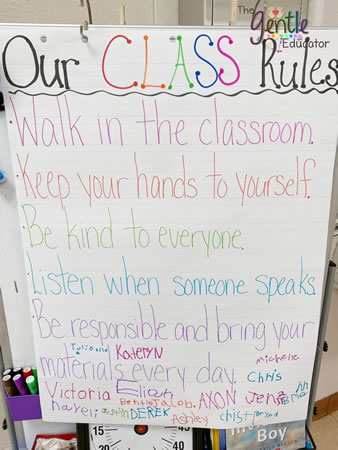 The
Gentle
Educator
Our CLASS Rules
Walk in the classroom.
Keep your hands to yourself.
Be kind to everyone.
Listen when someone speaks.
Be responsible and bring your
materials every day.
Julianna Kateryn Michelle
Chris
Victoria Elijah
Jacob. AXON
nayeli Justin DEREK Ashley
Boy